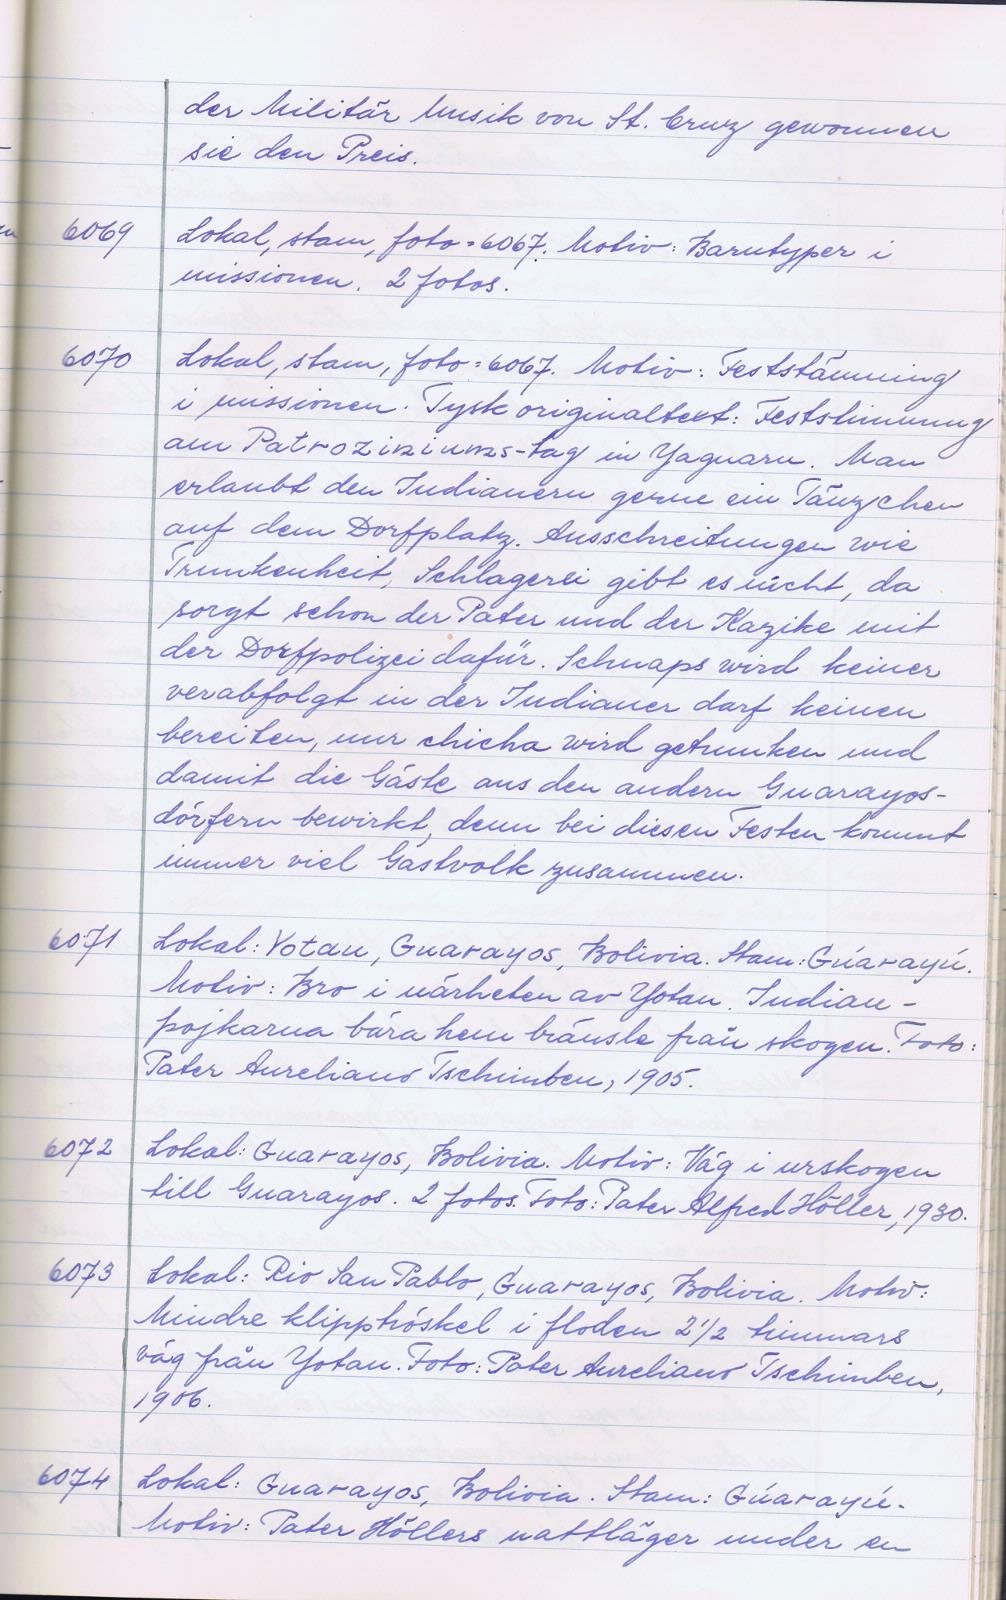 der Militär Musik von St. Cruz gewonnen
sie den Preis.
6069 Lokal, stam, foto = 6067. Motiv: Barntyper i
missionen. 2 fotos.
6070 Lokal, stam, foto = 6067. Motiv: Feststämning
i missionen. Tysk originaltext: Feststimmung
am Patroziniums-tag in Yaguaru. Man
erlaubt den Indianern gerne ein Tänzchen
auf dem Dorfplatz. Ausschreitungen wie
Trunkenheit, Schlagerei gibt es nicht, da
sorgt schon der Pater und der Kazike mit
der Dorfpolizei dafür. Schnaps wird keiner
verabfolgt in der Indianer darf keinen
bereiten, nur chicha wird getrunken und
damit die Gäste aus den andern Guarayos-
dörfern bewirkt, denn bei diesen Festen kommt
immer viel Gastvolk zusammen.
6071 Lokal: Yotau, Guarayos, Bolivia. Stam: Gúarayú.
Motiv: Bro i närheten av Yotau. Indian-
pojkarna bära hem bränsle från skogen. Foto:
Pater Aureliano Tschimben, 1905.
6072 Lokal: Guarayos, Bolivia. Motiv: Väg i urskogen
till Guarayos. 2 fotos. Foto: Pater Alfred Höller, 1930.
6073 Lokal: Rio San Pablo, Guarayos, Bolivia. Motiv:
Mindre klipptröskel i floden 2 1/2 timmars
väg från Yotau. Foto: Pater Aureliano Tschimben,
1906.
6074 Lokal: Guarayos, Bolivia. Stam: Gúarayú.
Motiv: Pater Höllers nattläger under en